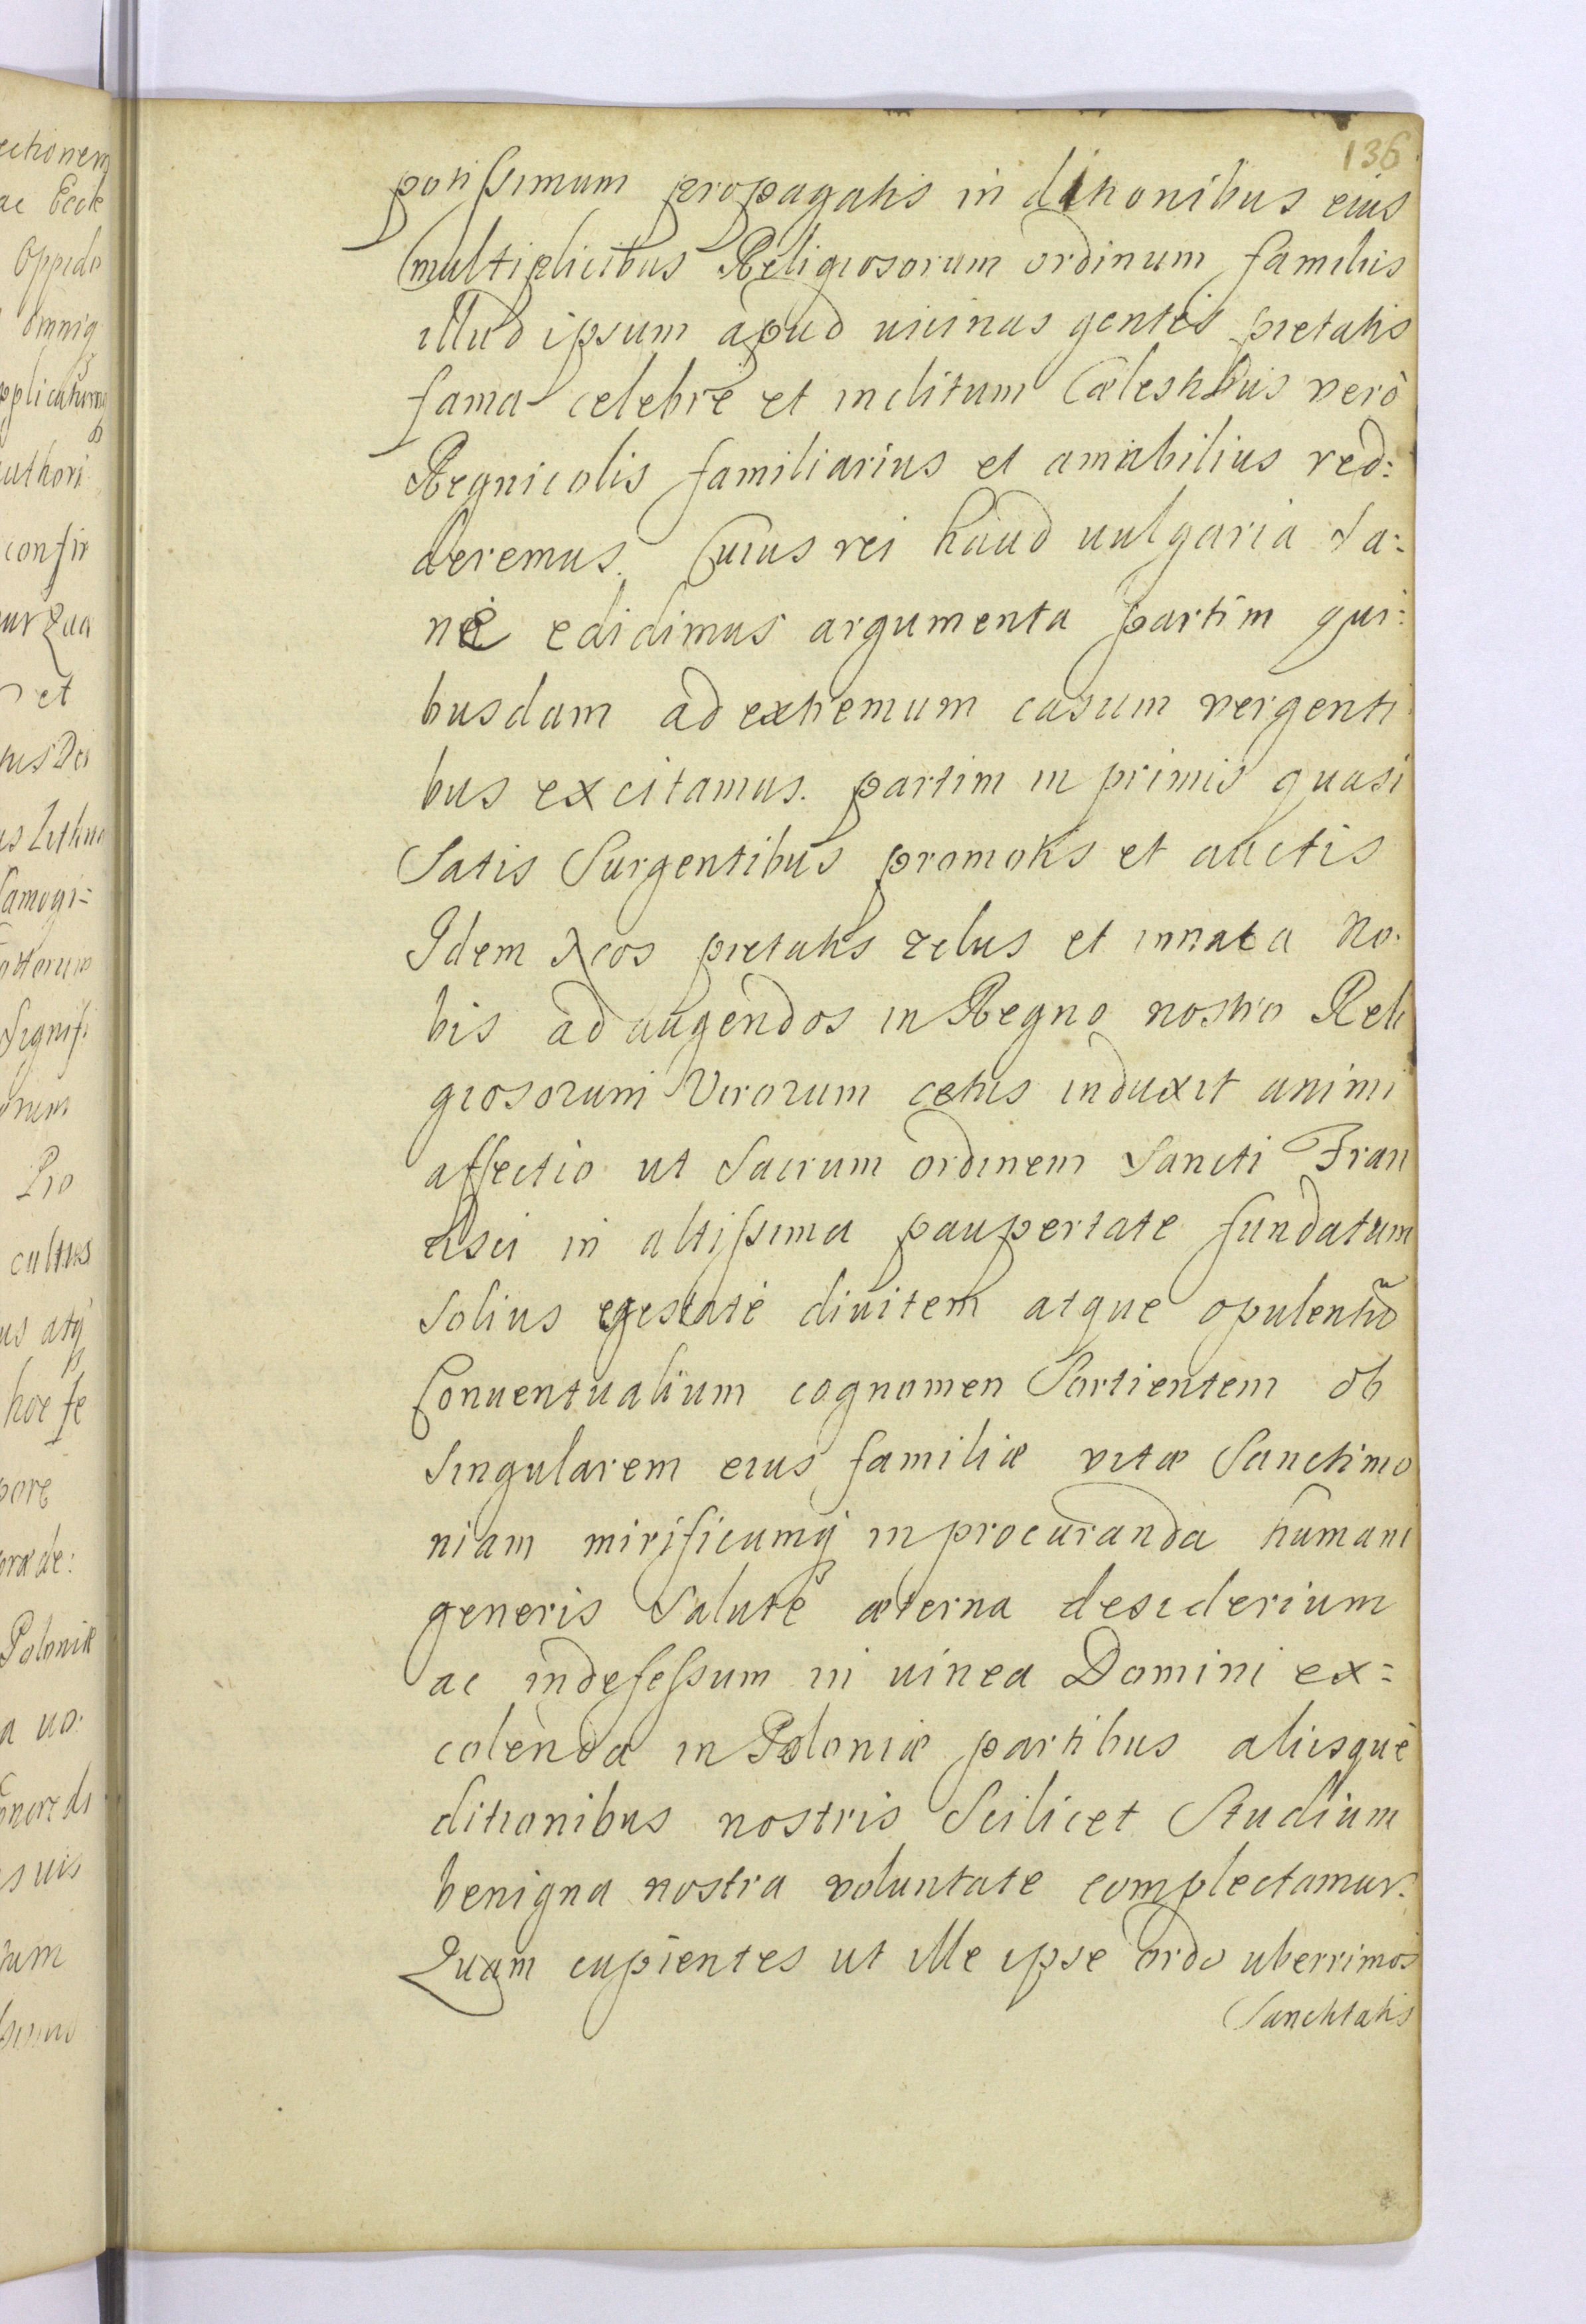 136
potissimum propagatis in ditionibus eius
multiplicibus Religiosorum ordinum familiis
illud ipsum apud uicinas gentes pietatis
fama celebre et inclitum Cælestibus verò
Regnicolis familiarius et amabilius red:
deremus. Cuius rei haud uulgaria sa:
ne edidimus argumenta partim qui:
busdam ad extremum casum vergenti
bus excitamus. partim in primis quasi
Satis Surgentibus promotis et auctis
Idem pietatis zelus et innata no.
bis ad augendos in Regno nostro Reli
giosorum Virorum cetus induxit animi
affectio ut Sacrum ordinem Sancti Fran
cisci in altissima paupertate fundatum
Solius egestate diuitem atque
Conuentualium cognomen Sortientem ob
Singularem eius familiæ vitæ Sanctimo
niam mirificumq in procuranda humani
generis Salute æterna desiderium
ac indefessum in uinea Domini ex=
colenda in Poloniæ partibus aliisque
ditionibus nostris Scilicet Studium
benigna nostra voluntate complectamur.
Quam cupientes ut ille ipse ordo uberrimos
Sanctitatis
ac Eccle
Oppido
omniq
authori
confir
et
Samogi=
Signifi
Pro
cultus
hoc se
Poloniæ